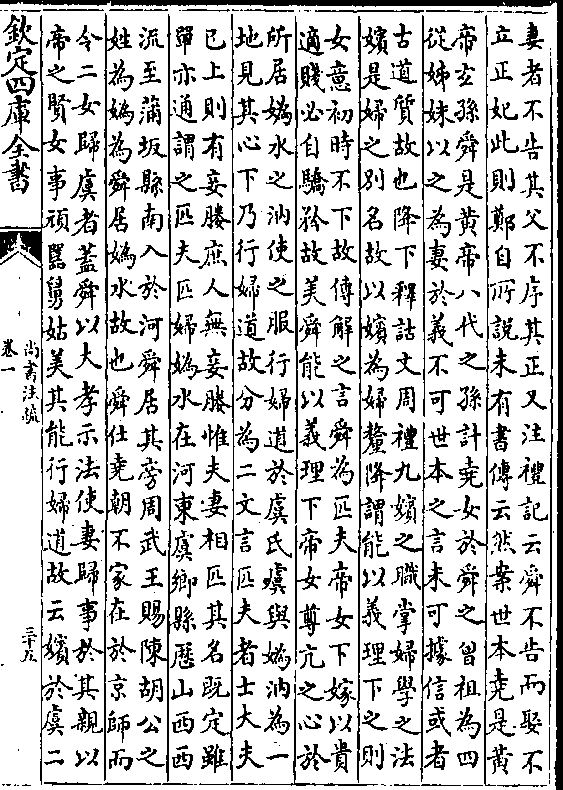 妻者不告其父不序其正又注禮記云舜不告而娶不
立正妃此則鄭自所說未有書傳云然案世本堯是黃
帝玄孫舜是黃帝八代之孫計堯女於舜之曾祖為四
從姊妹以之為妻於義不可世本之言未可據信或者
古道質故也降下釋詁文周禮九嬪之職掌婦學之法
嬪是婦之別名故以嬪為婦釐降謂能以義理下之則
女意初時不下故傳解之言舜為匹夫帝女下嫁以貴
適賤必自驕矜故美舜能以義理下帝女尊亢之心於
所居媯水之汭使之服行婦道於虞氏虞與媯汭為一
地見其心下乃行婦道故分為二文言匹夫者士大夫
已上則有妾媵庶人無妾媵惟夫妻相匹其名既定雖
單亦通謂之匹夫匹婦媯水在河東虞鄉縣歷山西西
流至蒲坂縣南入於河舜居其旁周武王賜陳胡公之
姓為媯為舜居媯水故也舜仕堯朝不家在於京師而
今二女歸虞者蓋舜以大孝示法使妻歸事於其親以
帝之賢女事頑嚚舅姑美其能行婦道故云嬪於虞二
欽定四庫全書
尚書注疏
卷一
三十五